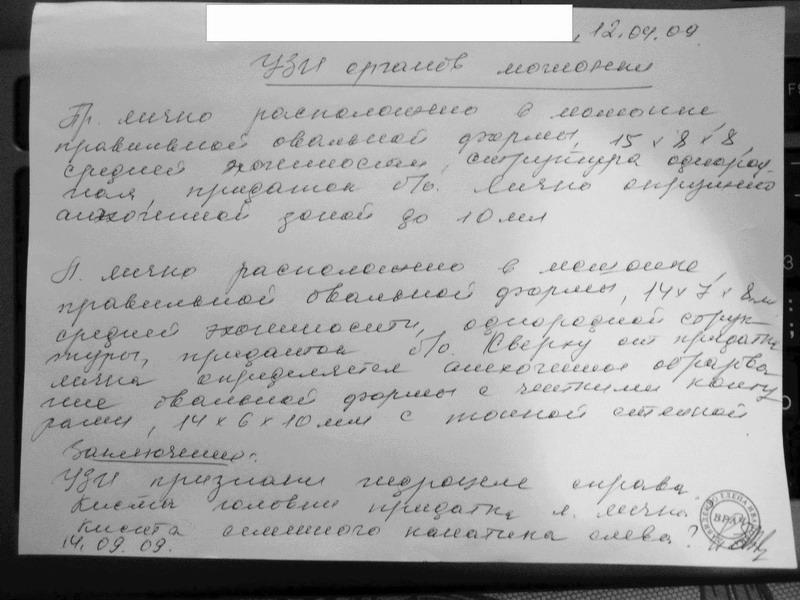 , 12.09.09
УЗИ органов мошонки
Пр. яичко расположено в мошонке,
правильной овальной формы, 15 x 8 x 8
средней эхогенности, структура однород-
ная придаток б/о. Яичко окружено
анэхогенной зоной до 10 мл
Л. яичко расположено в мошонке,
правильной овальной формы, 14 x 7 x 8 мм
средней эхогенности, однородной струк-
туры, придаток б/о. Сверху от придатка
яичка определяется анэхогенное образова
ние овальной формы с четкими конту
рами, 14 x 6 x 10 мм с тонкой стенкой
Заключение:
УЗИ признаки гидроцеле справа.
Киста головки придатка л. яичка
киста семенного канатика слева?
14.09.09.
ЕЛЕНА
ВРАЧ